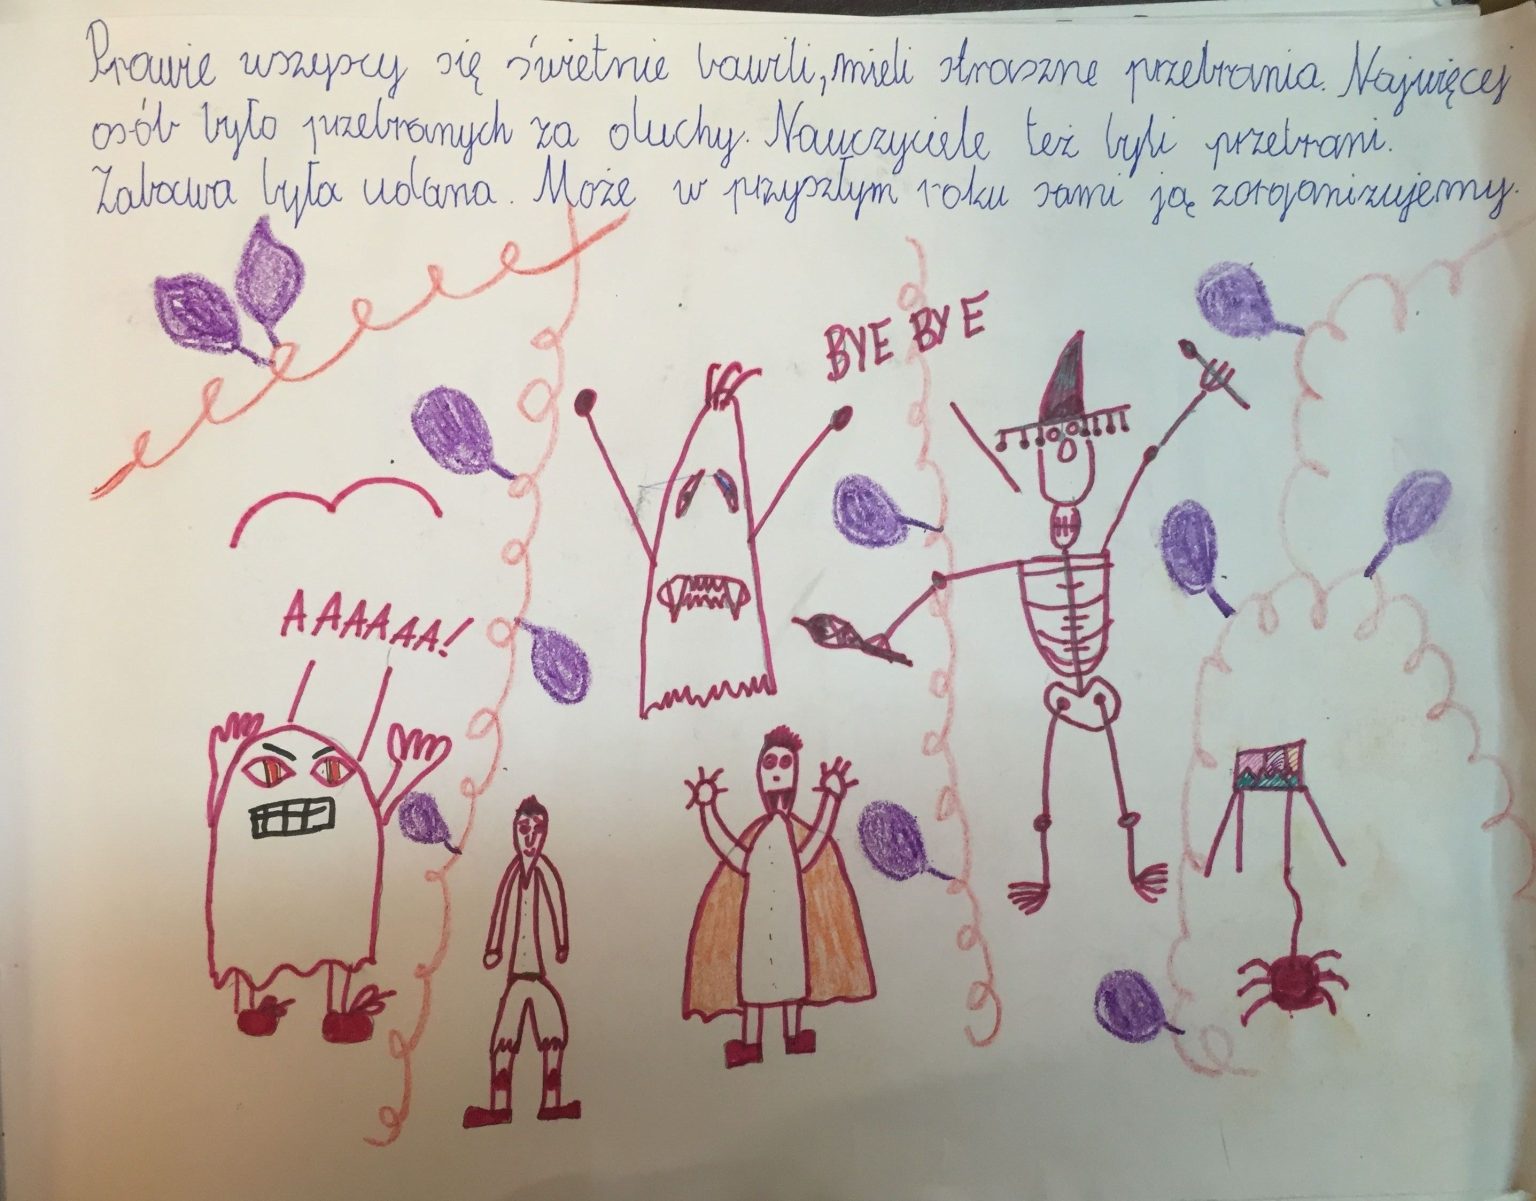 Prawie wszyscy się świetnie bawili, mieli straszne przebrania. Najwięcej
osób było przebranych za duchy. Nauczyciele też byli przebrani.
Zabawa była udana. Może w przyszłym roku sami ją zorganizujemy.
BYE BYE
AAAAAA!